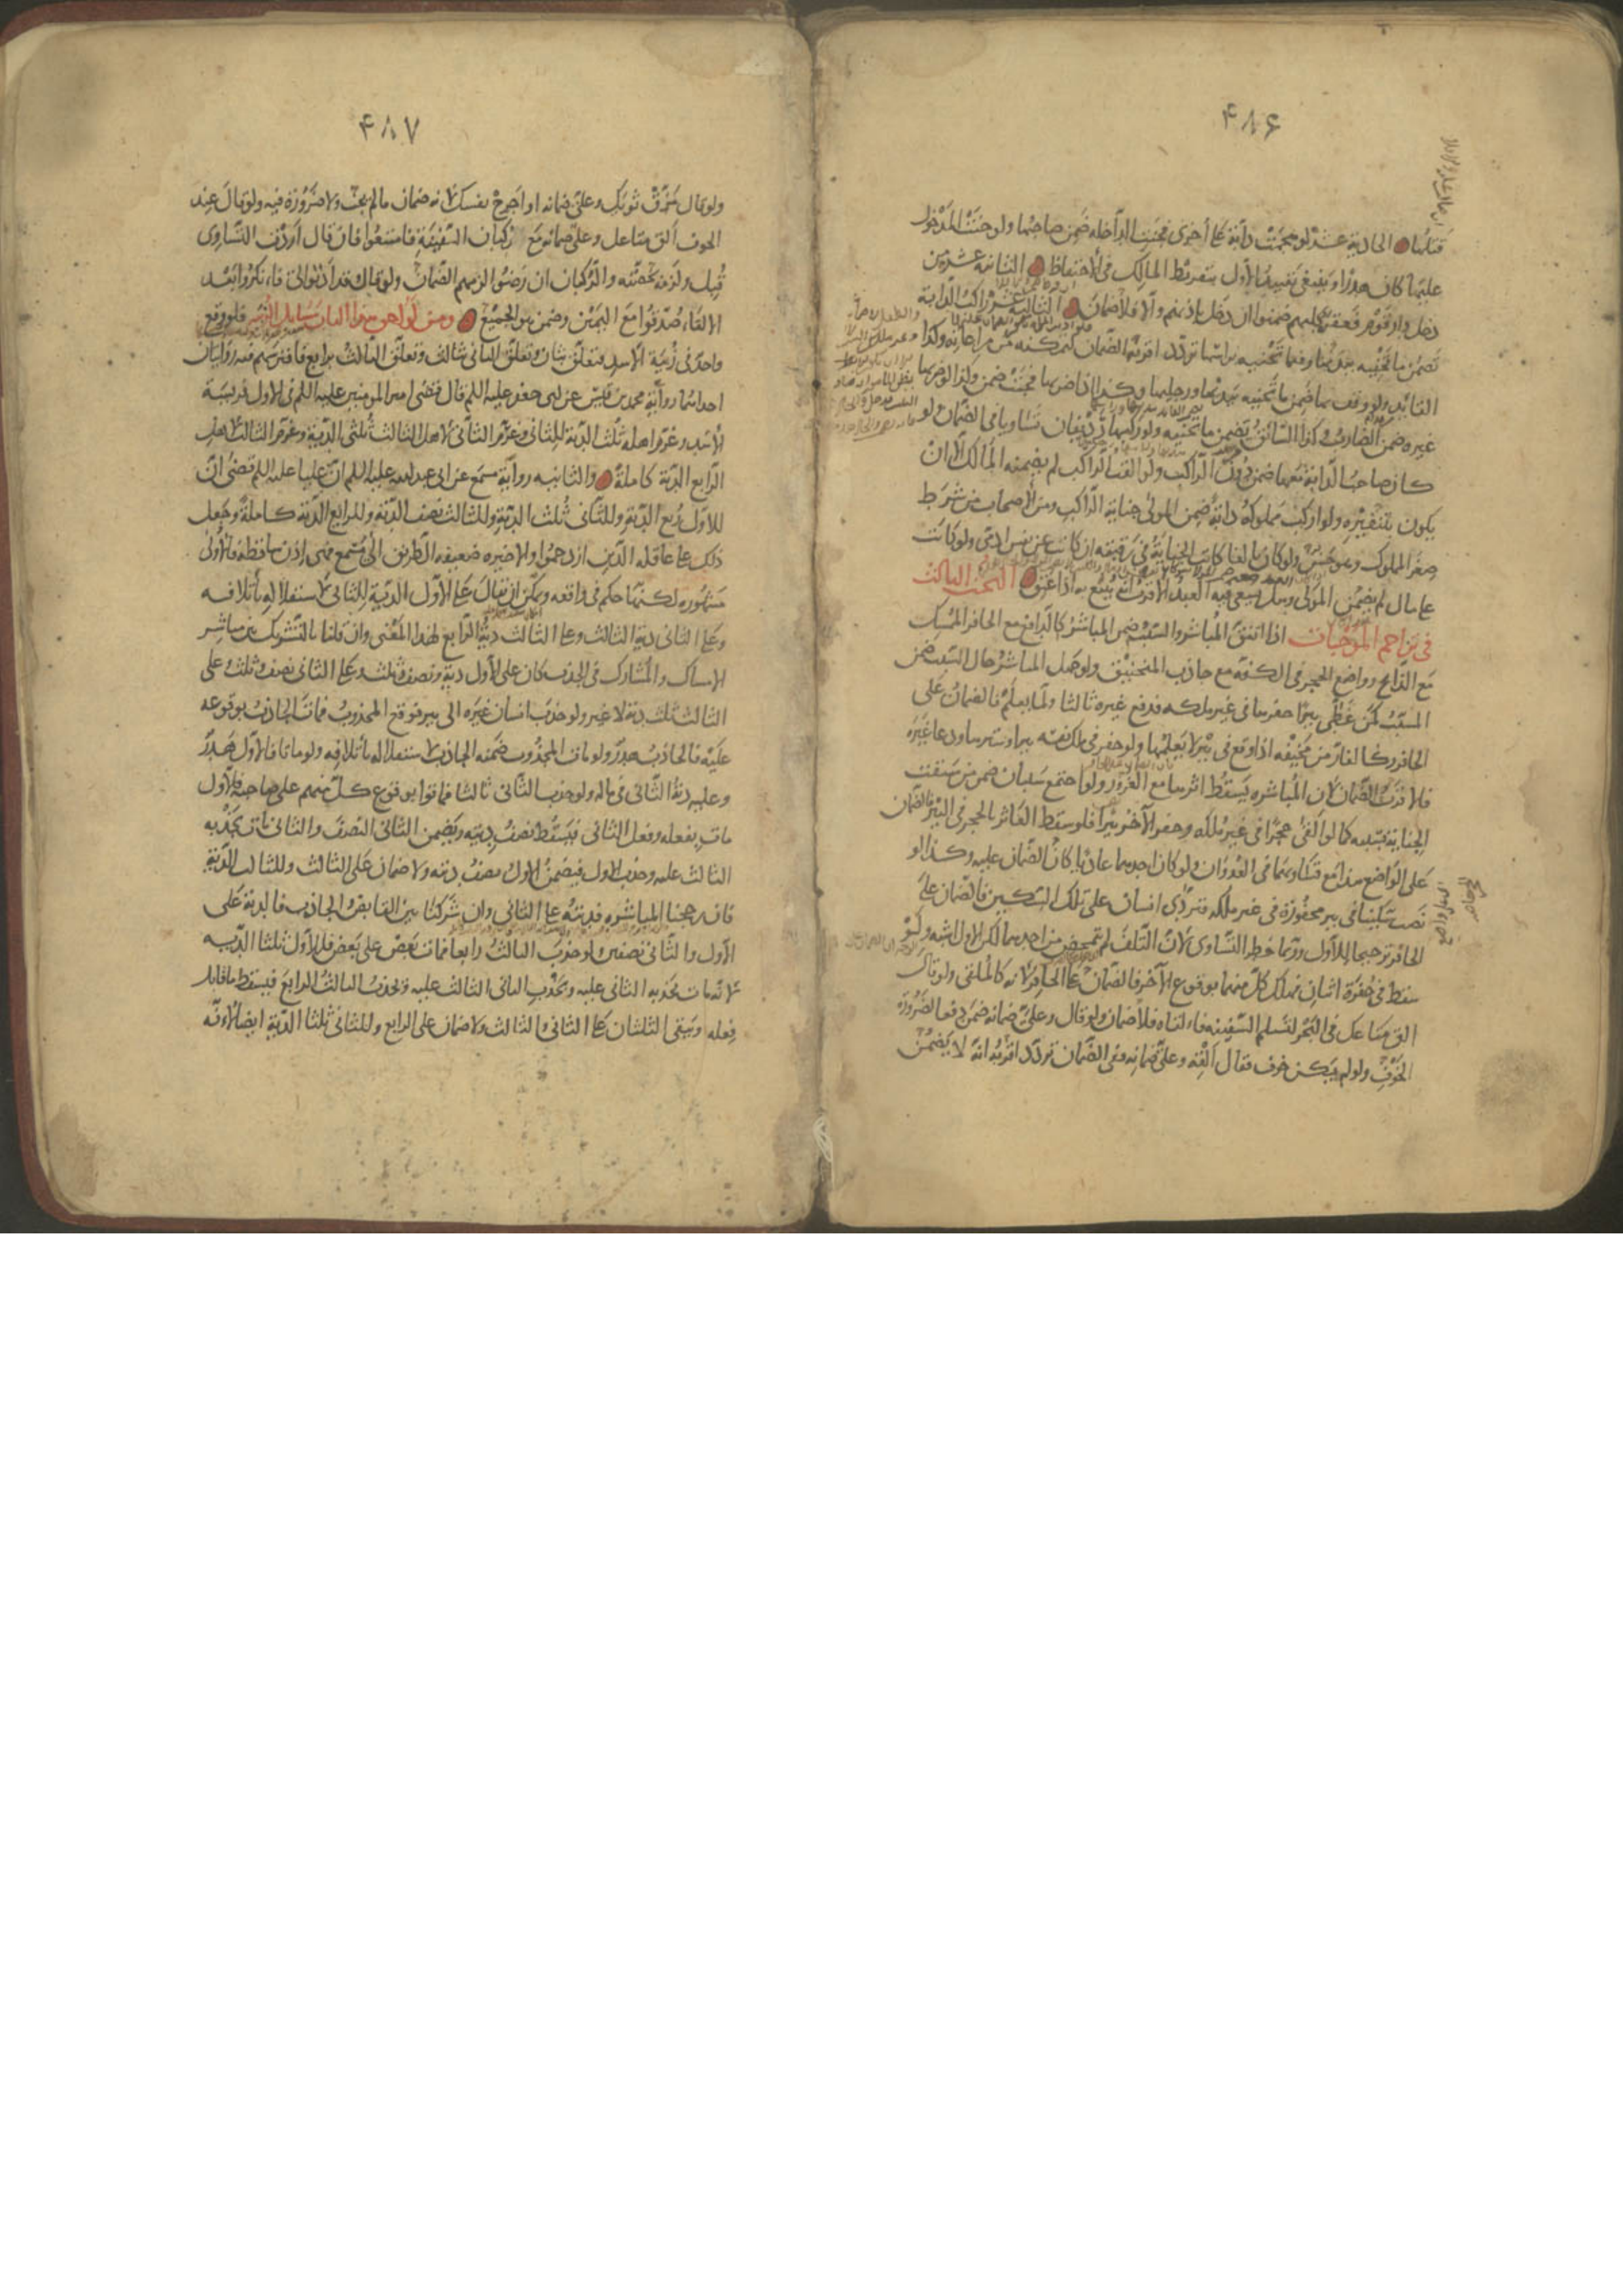 ۴۸۶
قتلها الحادية عشر لو هجمت دابة على أخرى فجنت الداخلة ضمن صاحبها ولو جنت المدخول
عليها كان هدرا وينبغي تقييد الأول بتفريط المالك في الاحتفاظ الثانية عشر من
دخل دار قوم فعقره كلبهم ضمنوا ان دخل باذنهم والا فلا ضمان الثالثة عشر راكب الدابة
يضمن ما تجنيه بيديها وفيما تجنيه براسها تردد اقربه الضمان لتمكنه من مراعاته وكذا
القائد ولو وقف بها ضمن ما تجنيه بيديها ورجليها وكذا اذا ضربها فجنت ضمن وكذا لو ضربها
غيره ضمن الضارب وكذا السائق يضمن ما تجنيه ولو ركبها رديفان تساويا في الضمان ولو
كان صاحب الدابة معها ضمن دون الراكب ولو القت الراكب لم يضمنه المالك الا ان
يكون بتنفيره ولو اركب مملوكه دابة ضمن المولى جناية الراكب ومن الاصحاب من شرط
صغر المملوك وهو حسن ولو كان بالغا كانت الجناية في رقبته ان كانت على نفس ادمي ولو كانت
على مال لم يضمن المولى وهل يسعى فيه العبد الاقرب انه يتبع به اذا عتق البحث الثالث
في تزاحم الموجبات اذا اتفق المباشر والسبب ضمن المباشر كالدافع مع الحافر والممسك
مع الذابح وواضع الحجر في الكفة مع جاذب المنجنيق ولو جهل المباشر حال السبب ضمن
المسبب كمن غطى بئرا حفرها في غير ملكه فدفع غيره ثالثا ولما يعلم فالضمان على
الحافر وكالفار من مخيفه اذا وقع في بئر لا يعلمها ولو حفر في ملك نفسه بئرا وسترها ودعا غيره
فالاقرب الضمان لان المباشرة يسقط اثرها مع الغرور ولو اجتمع سببان ضمن من سبقت
الجناية بسببه كما لو القى حجرا في غير ملكه وحفر الآخر بئرا فلو سقط العاثر بالحجر في البئر فالضمان
على الواضع هذا مع تساويهما في العدوان ولو كان احدهما عاديا كان الضمان عليه وكذا لو
نصب سكينا في بئر محفورة في غير ملكه فتردى انسان على تلك السكين فالضمان على
الحافر ترجيحا للاول وربما خطر التساوي لان التلف لم يتمحض من احدهما لكن الاول اشبه ولو
سقط في حفرة اثنان فهلك كل منهما بوقوع الآخر فالضمان على الحافر لانه كالملقي ولو قال
الق متاعك في البحر لتسلم السفينة فالقاه فلا ضمان ولو قال وعلي ضمانه ضمن دفعا لضرورة
الخوف ولو لم يكن خوف فقال القه وعلي ضمانه ففي الضمان تردد اقربه انه لا يضمن
۴۸۷
ولو قال مزق ثوبك وعلي ضمانه او اجرح نفسك لانه ضمان ما لم يجب ولا ضرورة فيه ولو قال عند
الخوف الق متاعك وعلي ضمانه مع ركبان السفينة فامتنعوا فان قال اردت التساوي
قبل ولزمه بحصته والركبان ان رضوا لزمهم الضمان ولو قال قد اذنوا لي فانكروا بعد
الالقاء صدقوا مع اليمين وضمن هو الجميع ومن لواحق هذا الباب مسائل الزبية فلو وقع
واحد في زبية الأسد فتعلق بثان وتعلق الثاني بثالث وتعلق الثالث برابع فافترسهم ففيه روايتان
احداهما رواية محمد بن قيس عن ابي جعفر عليه السلم قال قضى امير المومنين عليه السلم في الاول فريسة
الأسد وغرم اهله ثلث الدية للثاني وغرم الثاني لاهل الثالث ثلثي الدية وغرم الثالث لاهل
الرابع الدية كاملة والثانيه رواية مسمع عن ابي عبد الله عليه السلم ان عليا عليه السلم قضى ان
للاول ربع الدية وللثاني ثلث الدية وللثالث نصف الدية وللرابع الدية كاملة وجعل
ذلك على عاقلة الذين ازدحموا والاخيره ضعيفه الطريق الى مسمع فهي اذن ساقطة والاولى
مشهوره لكنها حكم في واقعه ويمكن ان يقال على الاول الدية للثاني لاستقلاله بأتلافه
وعلى الثاني دية الثالث وعلى الثالث دية الرابع لهذا المعنى وان قلنا بالتشريك بين مباشر
الامساك والمشارك في الجذب كان على الاول دية ونصف وثلث وعلى الثاني نصف وثلث وعلى
الثالث ثلث دية لا غير ولو جذب انسان غيره الى بير فوقع المجذوب فمات الجاذب بوقوعه
عليه فالجاذب هدر ولو مات المجذوب ضمنه الجاذب لاستقلاله باتلافه ولو ماتا فالاول هدر
وعليه دية الثاني في ماله ولو جذب الثاني ثالثا فماتوا بوقوع كل منهم على صاحبه فالاول
مات بفعله وفعل الثاني فيسقط نصف ديته ويضمن الثاني النصف والثاني مات بجذبه
الثالث عليه وجذب الاول فيضمن الاول نصف ديته ولا ضمان على الثالث وللثالث الدية
فان رجحنا المباشره فديته على الثاني وان شركنا بين القابض والجاذب فالدية على
الاول والثاني نصفين ولو جذب الثالث رابعا فمات بعض على بعض فللاول ثلثا الدية
لانه مات بجذبه الثاني عليه وبجذب الثاني الثالث عليه وبجذب الثالث الرابع فيسقط ما قابل
فعله ويبقى الثلثان على الثاني والثالث ولا ضمان على الرابع وللثاني ثلثا الدية ايضا لانه